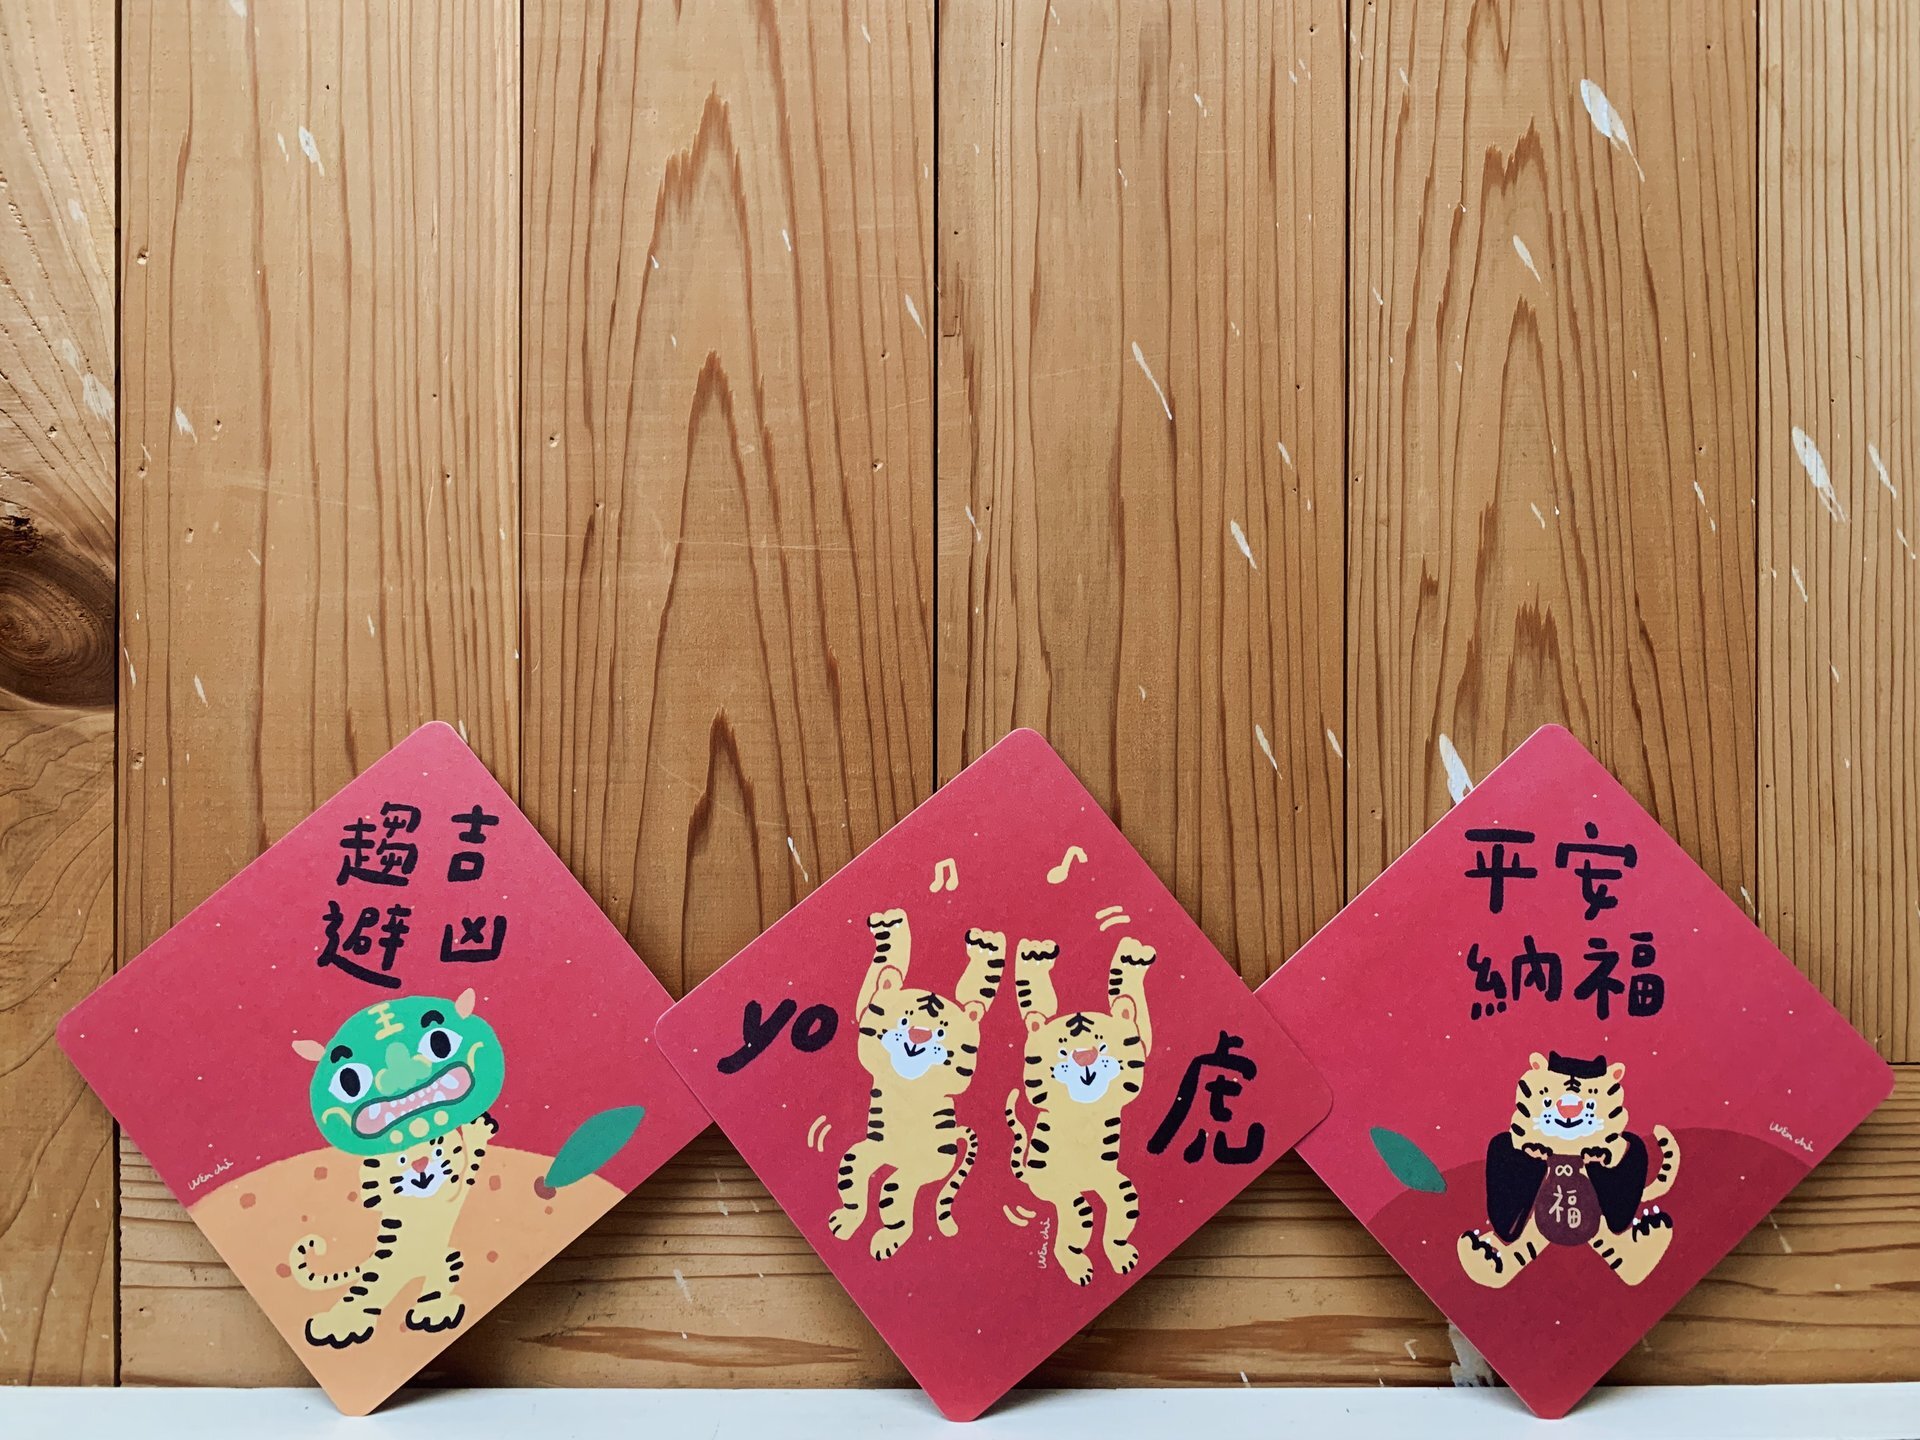 趨吉
避凶
王
wen chi
yo
虎
wen chi
平安
納福
福
wen chi